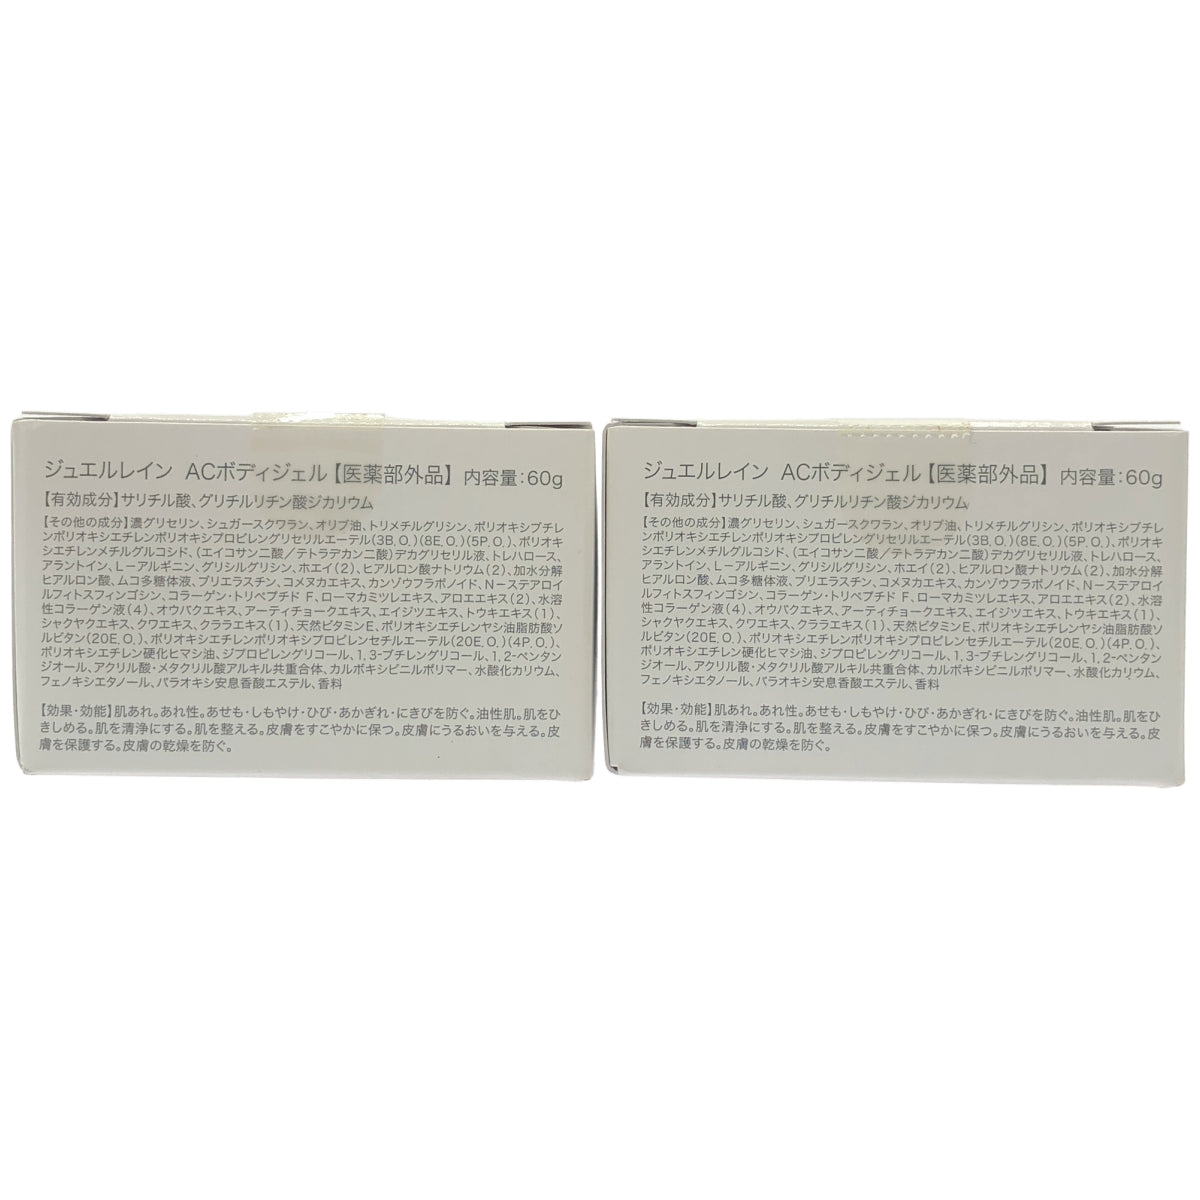 ジュエルレイン ACボディジェル【医薬部外品】 内容量:60g
【有効成分】サリチル酸、グリチルリチン酸ジカリウム
【その他の成分】濃グリセリン、シュガースクワラン、オリブ油、トリメチルグリシン、ポリオキシブチレ
ンポリオキシエチレンポリオキシプロピレングリセリルエーテル(3B.O.)(8E.O.)(5P.O.)、ポリオキ
シエチレンメチルグルコシド、(エイコサン二酸/テトラデカン二酸)デカグリセリル液、トレハロース、
アラントイン、L-アルギニン、グリシルグリシン、ホエイ(2)、ヒアルロン酸ナトリウム(2)、加水分解
ヒアルロン酸、ムコ多糖体液、プリエラスチン、コメヌカエキス、カンゾウフラボノイド、N-ステアロイ
ルフィトスフィンゴシン、コラーゲン・トリペプチド F、ローマカミツレエキス、アロエエキス(2)、水溶
性コラーゲン液(4)、オウバクエキス、アーティチョークエキス、エイジツエキス、トウキエキス(1)、
シャクヤクエキス、クワエキス、クララエキス(1)、天然ビタミンE、ポリオキシエチレンヤシ油脂肪酸ソ
ルビタン(20E.O.)、ポリオキシエチレンポリオキシプロピレンセチルエーテル(20E.O.)(4P.O.)、
ポリオキシエチレン硬化ヒマシ油、ジプロピレングリコール、1,3-ブチレングリコール、1,2-ペンタン
ジオール、アクリル酸・メタクリル酸アルキル共重合体、カルボキシビニルポリマー、水酸化カリウム、
フェノキシエタノール、パラオキシ安息香酸エステル、香料
【効果・効能】肌あれ。あれ性。あせも・しもやけ・ひび・あかぎれ・にきびを防ぐ。油性肌。肌をひ
きしめる。肌を清浄にする。肌を整える。皮膚をすこやかに保つ。皮膚にうるおいを与える。皮
膚を保護する。皮膚の乾燥を防ぐ。
ジュエルレイン ACボディジェル【医薬部外品】 内容量:60g
【有効成分】サリチル酸、グリチルリチン酸ジカリウム
【その他の成分】濃グリセリン、シュガースクワラン、オリブ油、トリメチルグリシン、ポリオキシブチレ
ンポリオキシエチレンポリオキシプロピレングリセリルエーテル(3B.O.)(8E.O.)(5P.O.)、ポリオキ
シエチレンメチルグルコシド、(エイコサン二酸/テトラデカン二酸)デカグリセリル液、トレハロース、
アラントイン、L-アルギニン、グリシルグリシン、ホエイ(2)、ヒアルロン酸ナトリウム(2)、加水分解
ヒアルロン酸、ムコ多糖体液、プリエラスチン、コメヌカエキス、カンゾウフラボノイド、N-ステアロイ
ルフィトスフィンゴシン、コラーゲン・トリペプチド F、ローマカミツレエキス、アロエエキス(2)、水溶
性コラーゲン液(4)、オウバクエキス、アーティチョークエキス、エイジツエキス、トウキエキス(1)、
シャクヤクエキス、クワエキス、クララエキス(1)、天然ビタミンE、ポリオキシエチレンヤシ油脂肪酸ソ
ルビタン(20E.O.)、ポリオキシエチレンポリオキシプロピレンセチルエーテル(20E.O.)(4P.O.)、
ポリオキシエチレン硬化ヒマシ油、ジプロピレングリコール、1,3-ブチレングリコール、1,2-ペンタン
ジオール、アクリル酸・メタクリル酸アルキル共重合体、カルボキシビニルポリマー、水酸化カリウム、
フェノキシエタノール、パラオキシ安息香酸エステル、香料
【効果・効能】肌あれ。あれ性。あせも・しもやけ・ひび・あかぎれ・にきびを防ぐ。油性肌。肌をひ
きしめる。肌を清浄にする。肌を整える。皮膚をすこやかに保つ。皮膚にうるおいを与える。皮
膚を保護する。皮膚の乾燥を防ぐ。